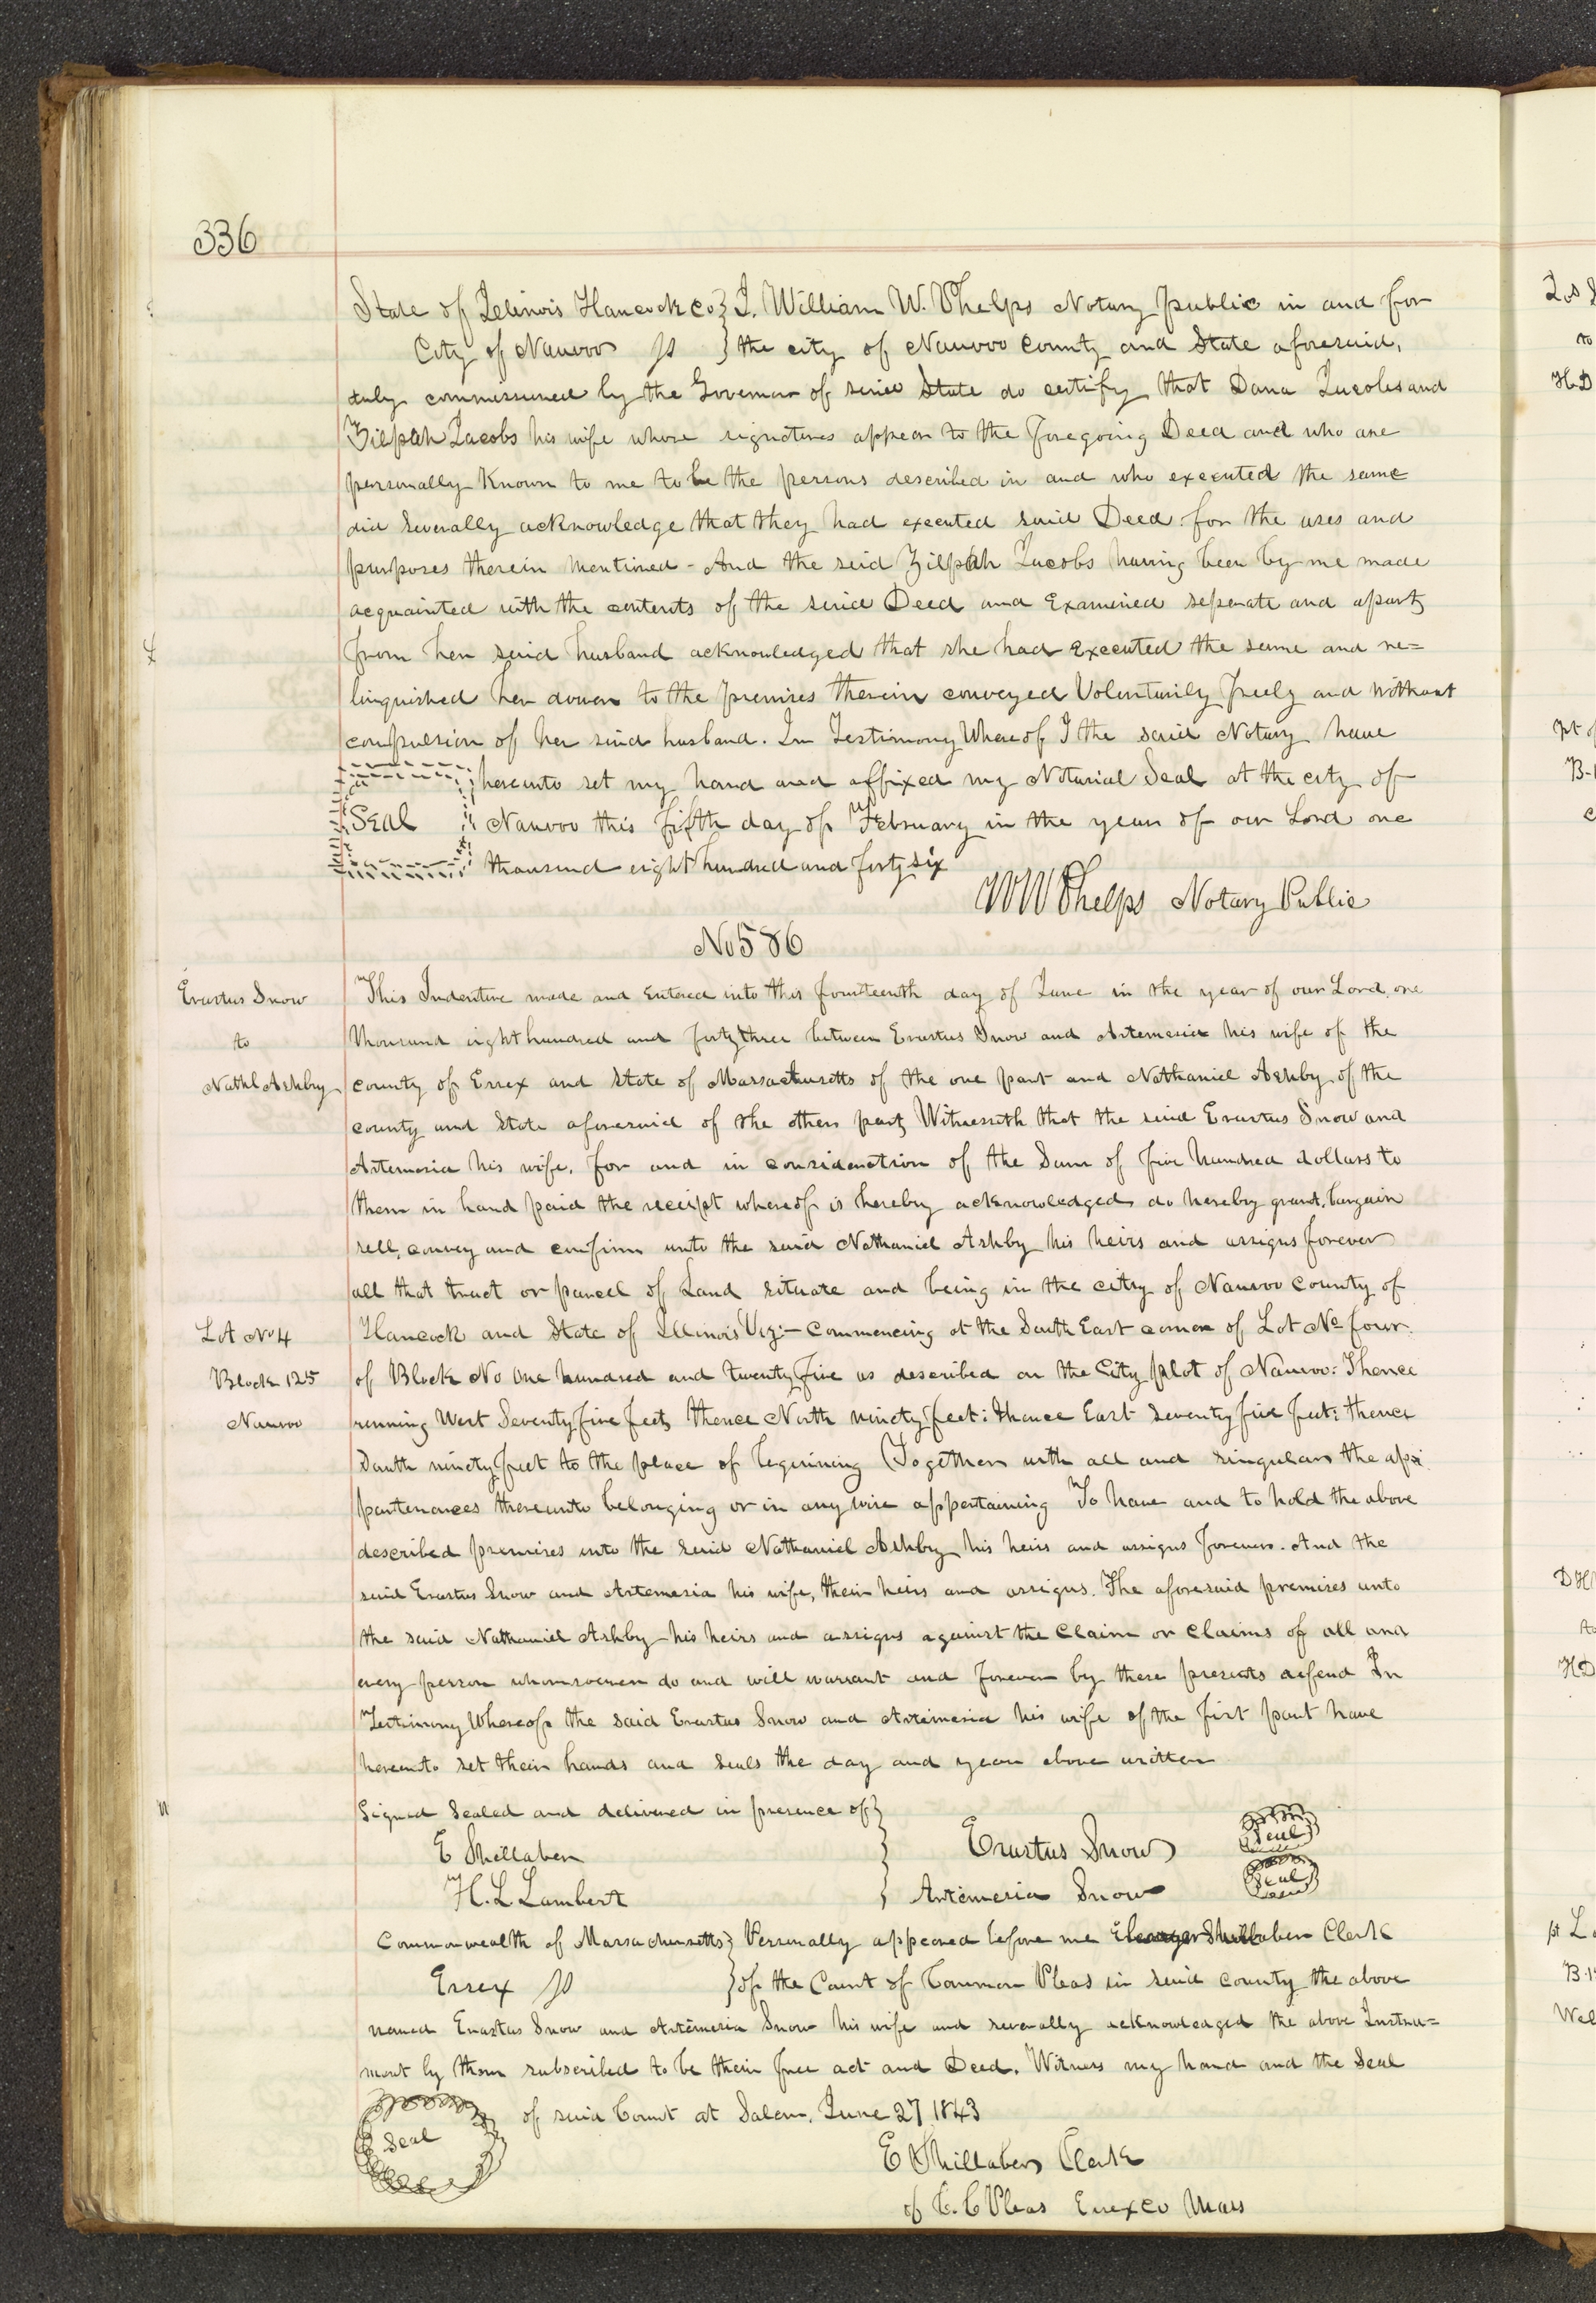 336
State of Illinois Hancock Co } I. William W. Phelps Notary public in and for
City of Nauvoo ss } the city of Nauvoo County and State aforesaid,
duly commissioned by the Governor of said State do certify that Dana Jacobs and
Zilpah Jacobs his wife whose signatures appear to the foregoing Deed and who are
personally known to me to be the persons described in and who executed the same
did severally acknowledge that they had executed said Deed for the uses and
purposes therein mentioned - And the said Zilpah Jacobs having been by me made
acquainted with the contents of the said Deed and Examined seperate and apart
from her said husband acknowledged that she had executed the same and re=
linquished her dower to the premises therein conveyed Voluntarily freely and without
compulsion of her said husband. In Testimony Whereof I the said Notary have
hereunto set my hand and affixed my Notarial Seal at the city of
Seal Nauvoo this fifth day of February in the year of our Lord one
thousand eight hundred and forty six
WW Phelps Notary Public
No 586
Erastus Snow
to
Nathl Ashby
This Indenture made and entered into this fourteenth day of June in the year of our Lord, one
thousand eight hundred and forty three between Erastus Snow and Artemesia his wife of the
county of Essex and State of Massachusetts of the one part and Nathaniel Ashby of the
county and State aforesaid of the other part, Witnesseth that the said Erastus Snow and
Artemesia his wife, for and in consideration of the Sum of five hundred dollars to
them in hand paid the receipt whereof is hereby acknowledged do hereby grant, bargain
sell, convey and confirm unto the said Nathaniel Ashby his heirs and assigns forever
all that tract or parcel of Land situate and being in the city of Nauvoo County of
Lot No 4
Block 125
Nauvoo
Hancock and State of Illinois Viz:- Commencing at the South East corner of Lot No four
of Block No One hundred and twenty five as described on the City plot of Nauvoo: Thence
running West Seventy five feet, thence North ninety feet: thence East seventy five feet: thence
South ninety feet to the place of beginning (Together with all and singular the ap
partenances thereunto belonging or in any wise appertaining To have and to hold the above
described premises unto the said Nathaniel Ashby his heirs and assigns forever. And the
said Erastus Snow and Artemesia his wife, their heirs and assigns. The aforesaid premises unto
the said Nathaniel Ashby his heirs and assigns against the Claim or Claims of all and
every person whomsoever do and will warrant and forever by these presents defend In
Testimony Whereof the said Erastus Snow and Artemesia his wife of the first part have
hereunto set their hands and seals the day and year above written
Signed Sealed and delivered in presence of }
E Shillaber } Erastus Snow Seal
H. L. Lambert } Artemesia Snow Seal
Commonwealth of Massachusetts } Personally appeared before me Shillaber Clerk
Essex ss } of the Court of Common Pleas in said county the above
named Erastus Snow and Artemesia Snow his wife and severally acknowledged the above Instru=
ment by them subscribed to be their free act and Deed. Witness my hand and the Seal
Seal of said Court at Salem, June 27, 1843
E Shillaber Clerk
of C. C Pleas Essex Co Mass